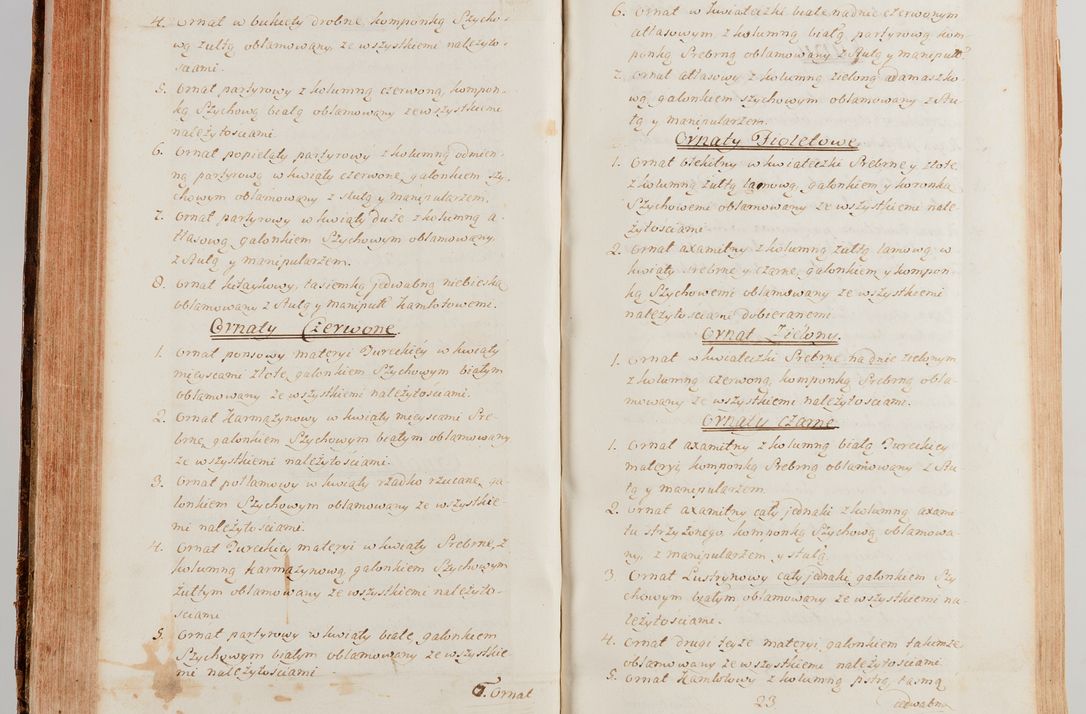 4. Ornat w bukiety drobne komponką Szycho-
wą zułtą oblamowany, ze wszystkiemi należyto-
sciami.
5. Ornat partyrowy z kolumną czerwoną, kompon-
ką Szychową białą oblamowany ze wszystkiemi
należytościami.
6. Ornat popielaty partyrowy z kolumną odmien-
ną partyrową w kwiaty czerwone, galonkiem Szy-
chowym oblamowany z stułą y manipularzem.
7. Ornat partyrowy w kwiaty duże z kolumną a-
tłasową, galonkiem Szychowym oblamowany,
z Stułą y manipularzem.
8. Ornat kitaykowy, tasiemką jedwabną niebieską
oblamowany z Stułą y manipułź kamlotowemi.
Ornaty Czerwone.
1. Ornat ponsowy materyi Tureckiey w kwiaty
mieyscami złote, galonkiem Szychowym białym
oblamowany ze wszystkiemi należytościami.
2. Ornat Karmazynowy w kwiaty mieyscami Sre-
brne, galonkiem Szychowym białym oblamowany
ze wszystkiemi należytościami.
3. Ornat połlamowy w kwiaty rzadko rzucane, ga-
lonkiem Szychowym oblamowany ze wszystkie-
mi należytościami.
4. Ornat Tureckiey materyi w kwiaty Srebrne, z
kolumną Karmazynową, galonkiem Szychowym
żułtym oblamowany ze wszystkiemi należyto-
sciami
5. Ornat partyrowy w kwiaty białe galonkiem
Szychowym białym oblamowany ze wszystkie
mi należytościami.
6. Ornat
6. Ornat w kwiateczki białe na dnie czerwonym
atłasowym z kolumną białą partyrową kom-
ponką Srebrną oblamowany z Stułą y manipułź
7. Ornat atłasowy z kolumną zieloną adamaszko-
wą, galonkiem szychowym oblamowany z Stu-
łą y manipularzem.
Ornaty Fioletowe
1. Ornat błękitny w kwiateczki Srebrne y złote,
z kolumną zułtą lamową, galonkiem y koronką
Szychowemi oblamowany ze wszystkiemi nale-
żytościami
2. Ornat axamitny z kolumną zułtą lamową w
kwiaty srebrne y czarne, galonkiem y kompon-
ką Szychowemi oblamowany ze wszystkiemi
należytościami dobieranemi.
Ornat Zielony.
1. Ornat w kwiateczki Srebrne na dnie zielonym
z kolumną czerwoną, komponką Srebrną obla-
mowany ze wszystkiemi należytościami.
Ornaty czarne
1. Ornat axamitny z kolumną białą Tureckiey
materyi, komponką Srebrną oblamowany z Stu-
łą y manipularzem.
2. Ornat axamitny cały jednaki z kolumną axami-
tu strzyżonego, komponką Szychową oblamowa-
ny, z manipularzem y stułą
3. Ornat Lustrynowy cały jednaki galonkiem Szy-
chowym białym oblamowany ze wszystkiemi na-
leżytościami.
4. Ornat drugi teyże materyi galonkiem takimże
oblamowany ze wszystkiemi należytościami
5. Ornat Kamlotowy z kolumną pstrą, tasmą
23
jedwabną